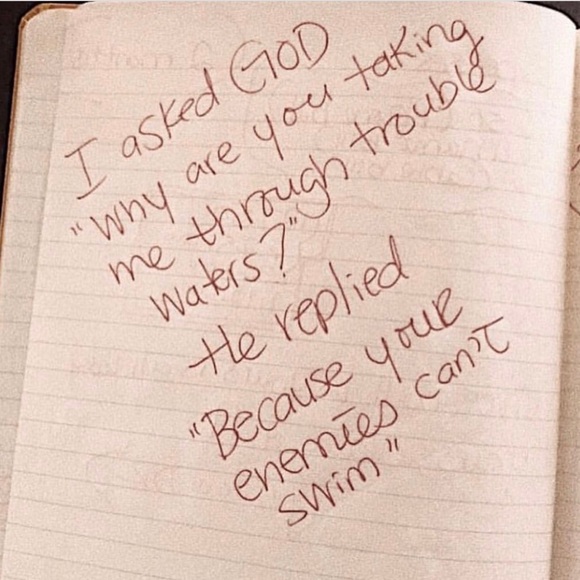 I asked GOD
"Why are you taking
me through trouble
waters?"
He replied
"Because your
enemies can't
swim"